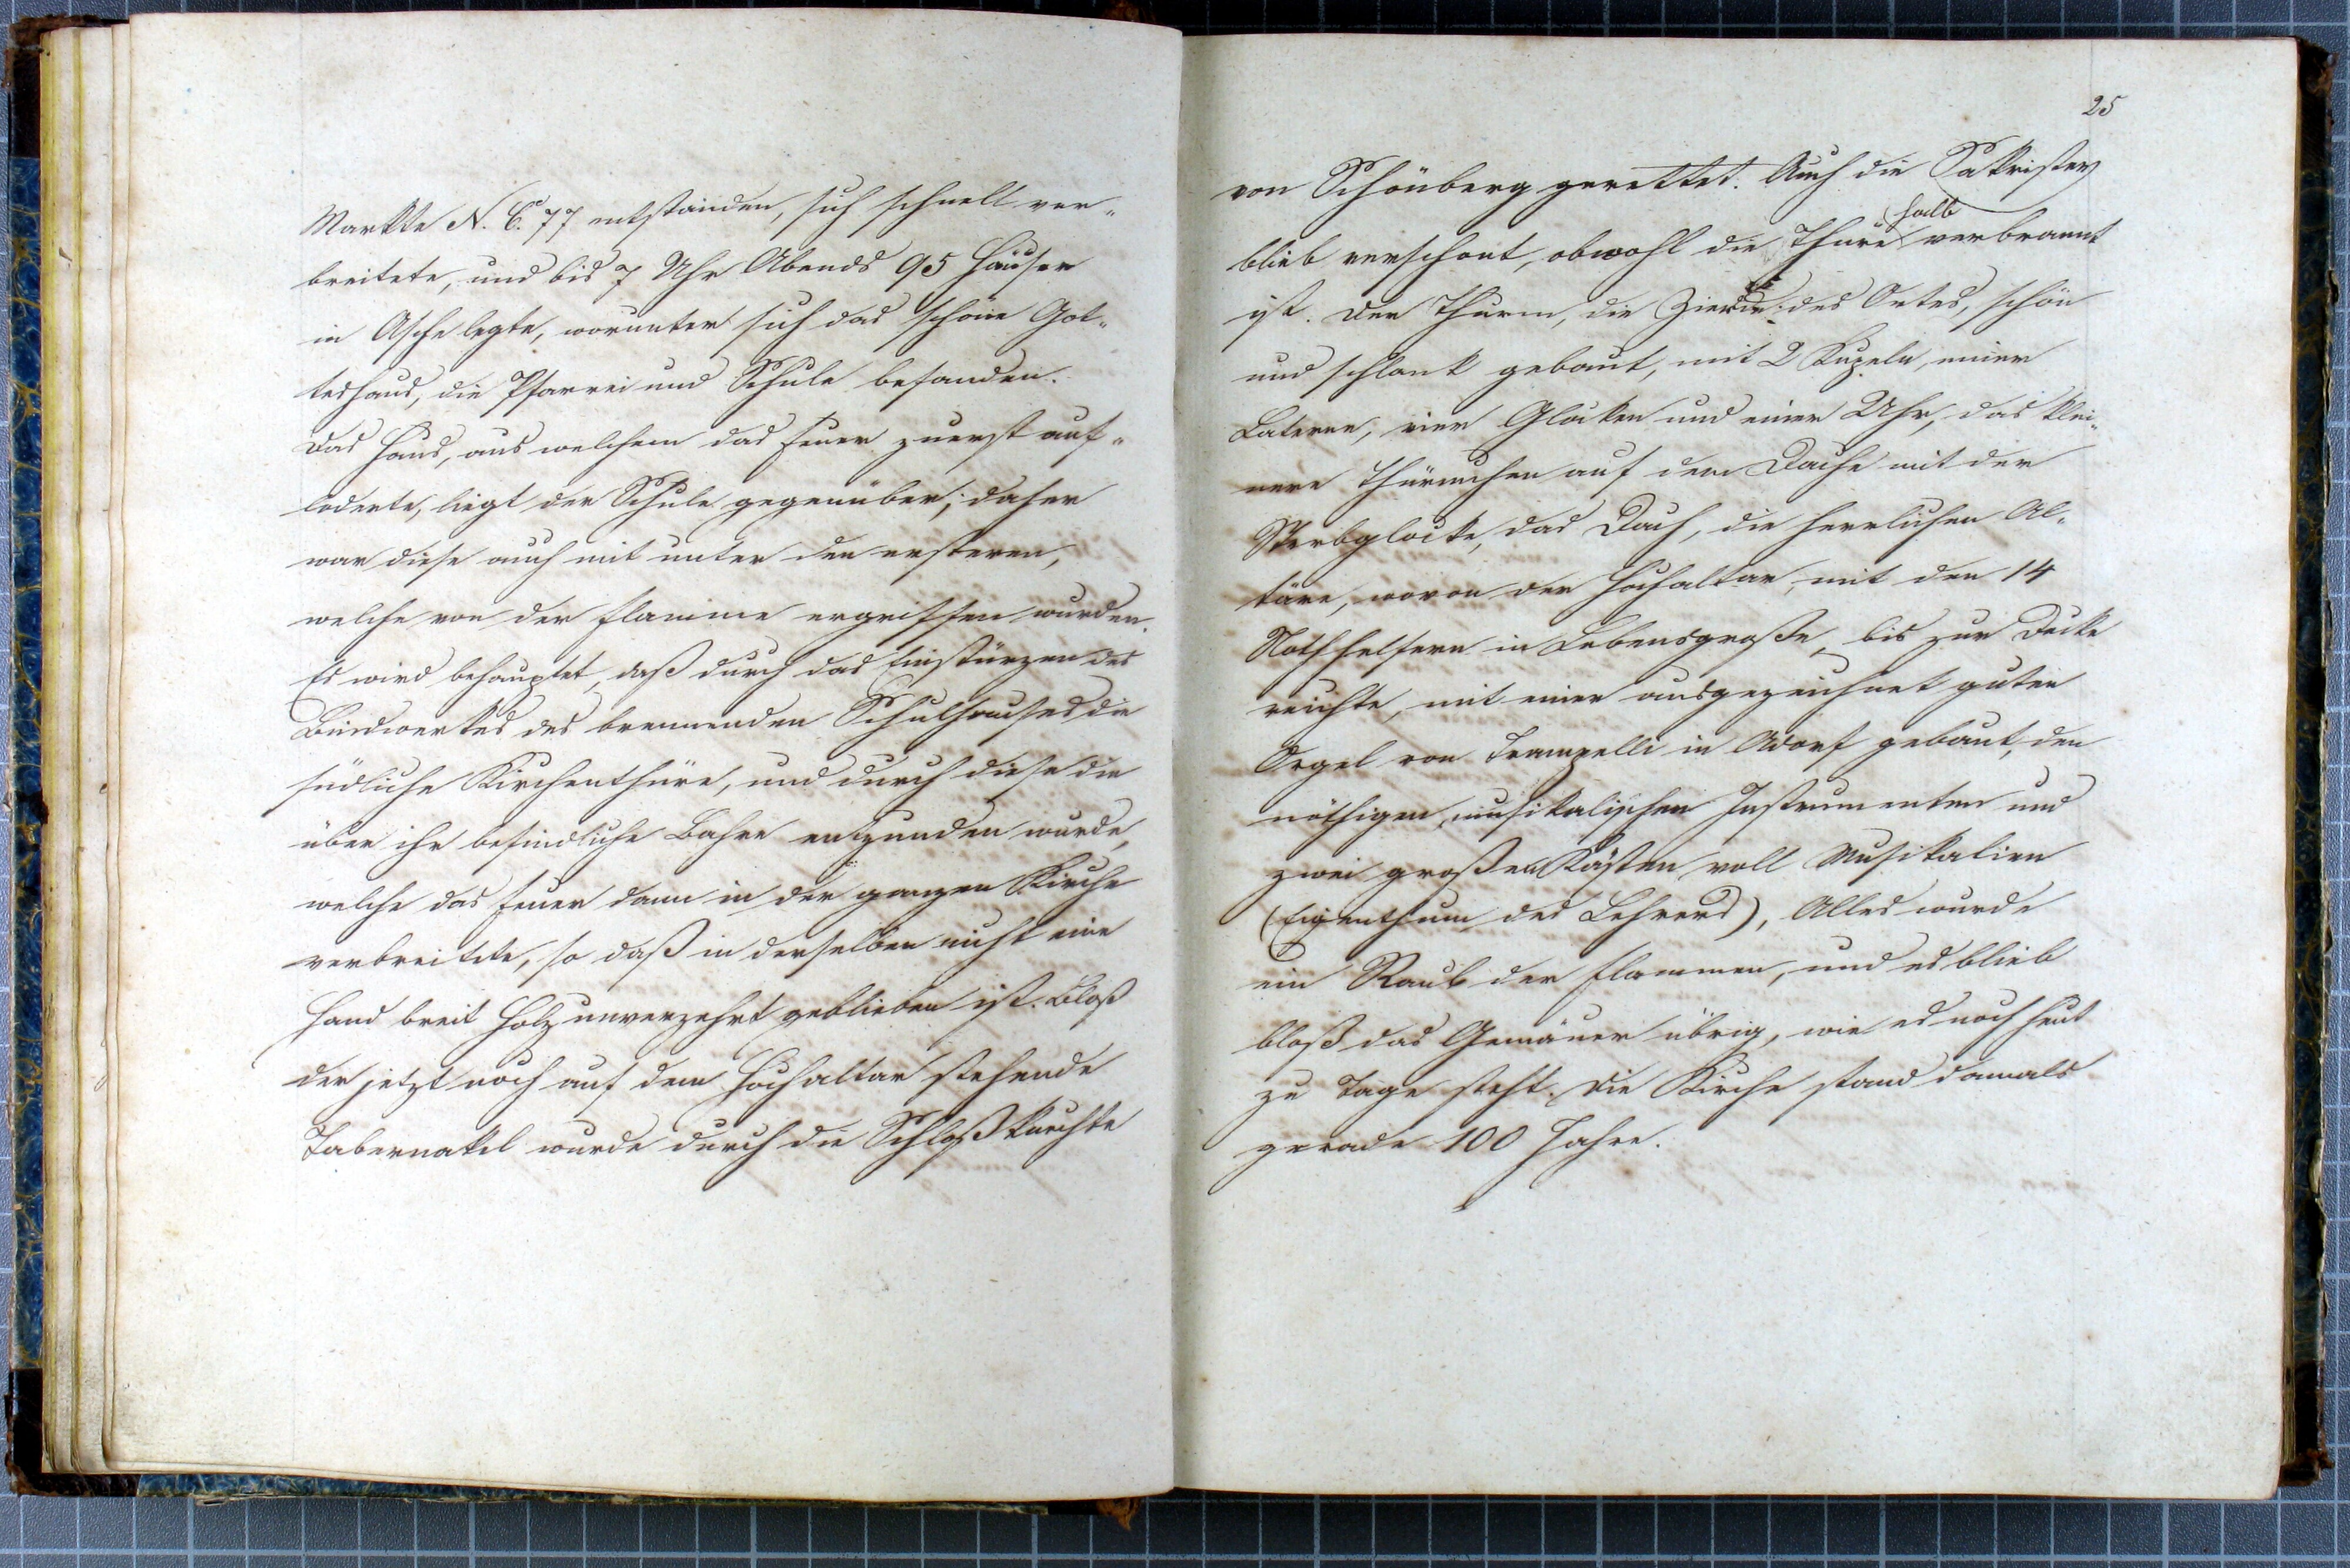 Markte N. C. 77 entstanden, sich schnell ver-
breitete, und bis 7 Uhr Abends 95 Häuser
in Asche legte, worunter sich das schöne Got-
teshaus, die Pfarrei und Schule befanden.
Das Haus, aus welchem das Feuer zuerst auf-
loderte, liegt der Schule gegenüber; daher
war diese auch mit unter den ersteren,
welche von der Flamme ergriffen wurden.
Es wird behauptet, daß durch das Einstürzen des
Bindwerkes des brennenden Schulhauses die
südliche Kirchenthüre, und durch diese die
über ihr befindliche Bahre entzunden wurde,
welche das Feuer dann in der ganzen Kirche
verbreitete, so daß in derselben nicht eine
Hand breit Holz unverzehrt geblieben ist. Bloß
der jetzt noch auf dem Hochaltar stehende
Tabernakel wurde durch die
25
von Schönberg gerettet. Auch die Sakristey
blieb verschont, obwohl die Thüre halb verbrannt
ist. Der Thurm, die Zierde des Ortes, schön
und schlank gebaut, mit 2 Kupeln, einer
Laterne, vier Glocken und einer Uhr, das klei-
nere Thürmchen auf dem Dache mit der
Sterbglocke, das Dach, die herrlichen Al-
täre, wovon der Hochaltar, mit den 14
Nothhelfern in Lebensgroße, bis zur Decke
reichte, mit einer ausgezeichnet guten
Orgel von Trampelli in Adorf gebaut, den
nöthigen musikalischen Instrumenten und
zwei großen Kästen voll Musikalien
(Eigenthum des Lehrers), Alles wurde
ein Raub der Flammen, und es blieb
bloß das Gemäuer übrig, wie es noch heut
zu Tage steht. Die Kirche stand damals
gerade 100 Jahre.